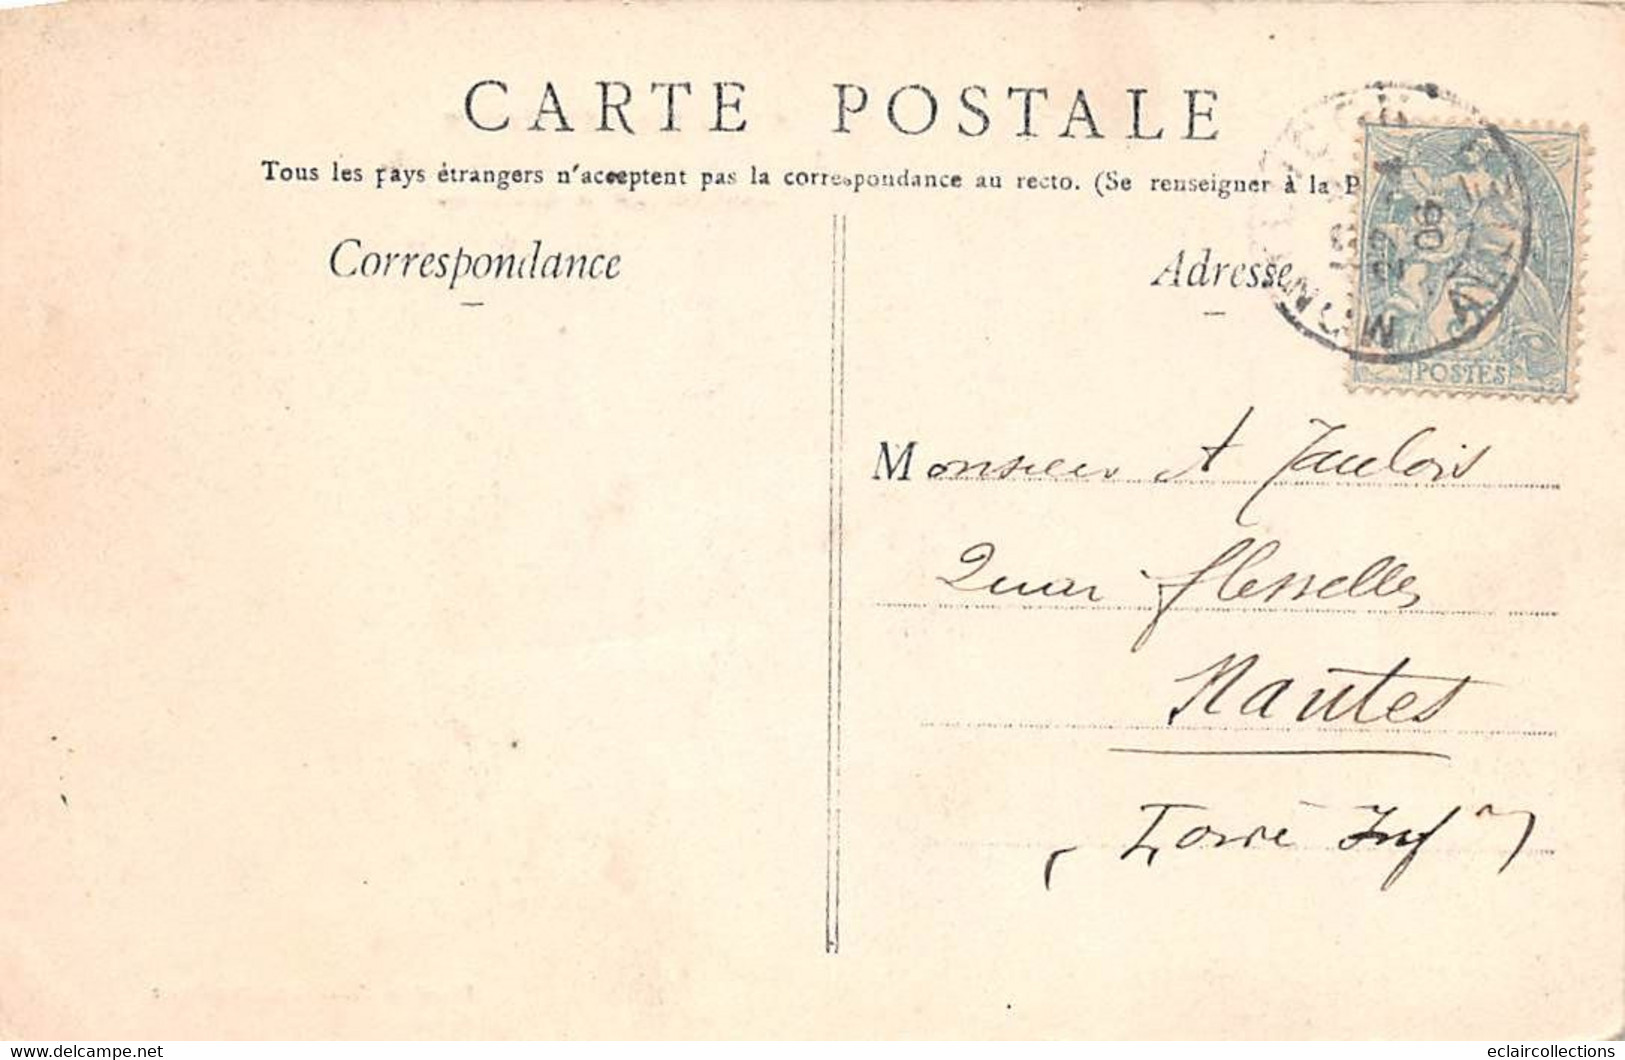 CARTE POSTALE
Tous les pays étrangers n'acceptent pas la correspondance au recto. (Se renseigner à la P
Correspondance
Adresse
POSTES
Monsieur A Jaulois
Quai flesselles
Nantes
(Loire Inf re)
delcampe.net
eclaircollections